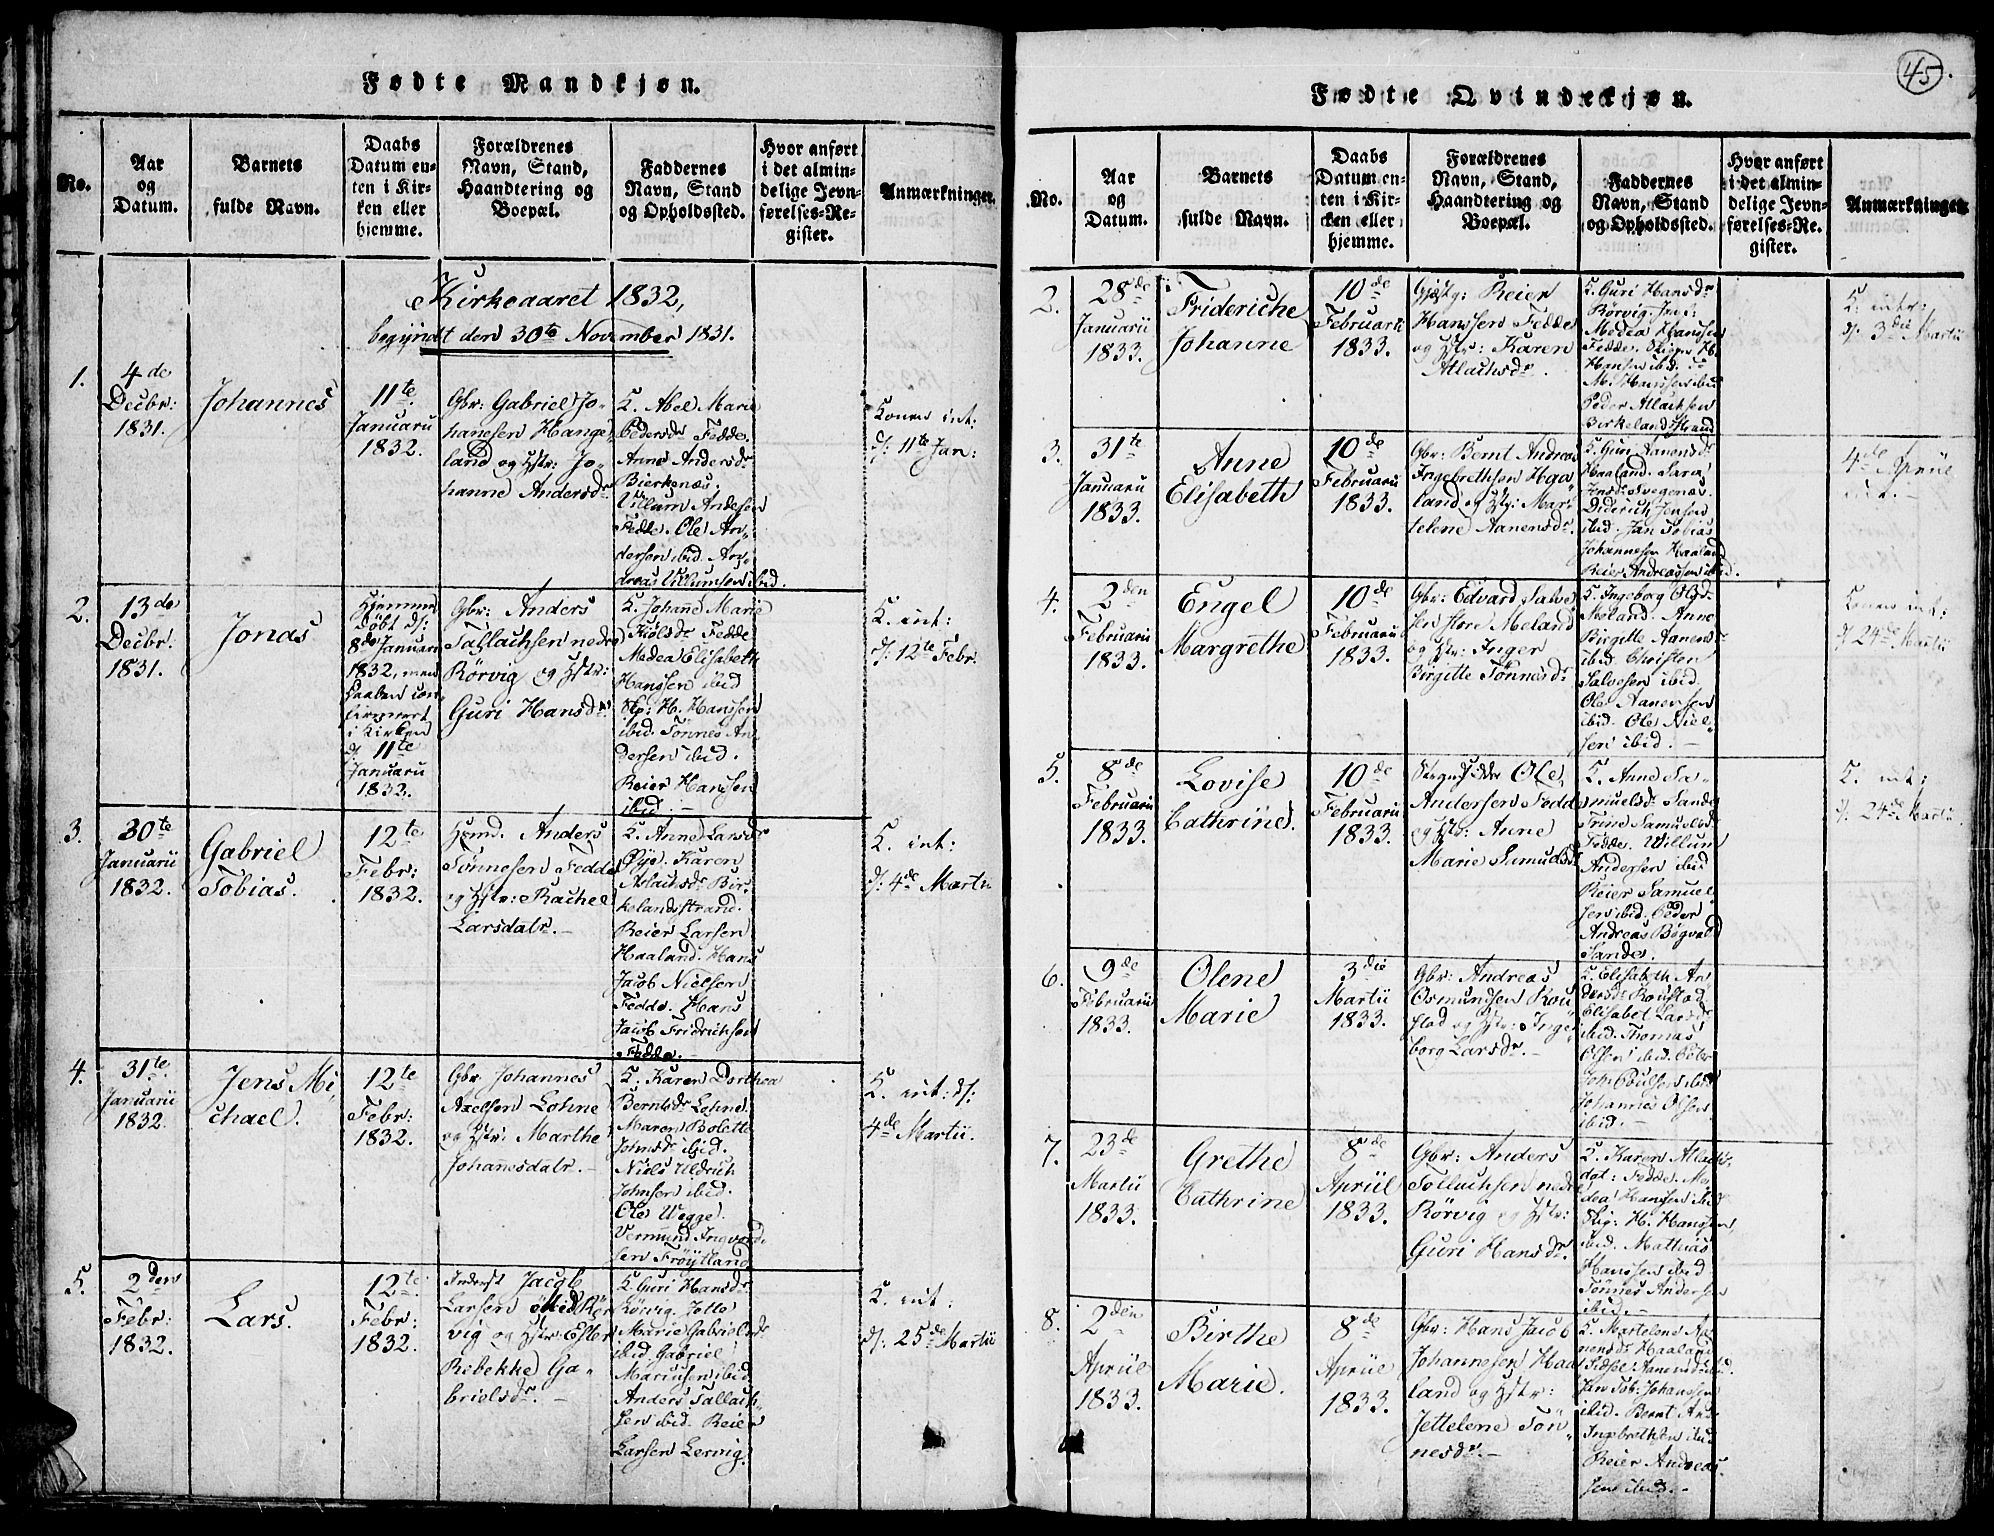 Fødte Mandkjøn.
No.
Aar
og
Datum.
Barnets
fulde Navn.
Daabs
Datum en-
ten i Kir-
ken eller
hjemme.
Forældrenes
Navn, Stand,
Haandtering og
Boepæl.
Faddernes
Navn, Stand
og Opholdssted.
Hvor anført
i det almin-
delige Jevn-
førelses-Re-
gister.
Anmærkninger.
Kirkeaaret 1832,
begyndt den 30te November 1831.
1.
4de
Decbr:
1831.
Johannes
11te
Januarii
1832.
Gbr: Gabriel Jo-
hanesen Hange-
land og Hstr: Jo-
hanne Andersdr.
K. Abel Marie
Pedersdr Fedde.
Anne Andersdr
Bierkenæs.
Villum Andersen
Fedde. Ole An-
dersen ibid. An-
dreas Villumsen ibid.
Konen int:
d: 11te Jan:
2.
13de
Decbr.
1831.
Jonas
Hjemme
døbt d:
8de Januarii
1832, men
Daaben con-
firmeret
i Kirken
d. 11te
Januarii
1832.
Gbr: Anders
Tallachsen nedre
Rørvig og Hstr:
Guri Hansdr.
K. Johane Marie
Fedde
Medea Elisabeth
Hanssen ibid
H. Hanssen
ibid. Tönnes An-
dersen ibid.
Reier Hanssen
ibid. -
K. int:
d: 12te Febr.
3.
30te
Januarii
1832.
Gabriel
Tobias.
12te
Febr:
1832.
Anders
Tönnesen Fedde
og Hstr: Rachel
Larsdatr. -
K. Anne Larsdr
Øye. Karen
Aslachsdr Bir-
kelandsstrand.
Reier Larsen
Haaland. Hans
Jacob Nielsen
Fedde. Hans
Jacob Fridrichsen
Fedde. -
K. int:
d: 4de Martii
4.
31te
Januarii
1832.
Jens Mi-
chael.
12te
Febr:
1832.
Gbr Johannes
Axelsen Lohne
og Hstr. Marthe
Johanesdatr. -
K. Karen Dorthea
Berntsdr Lohne.
Maren Bolette
Johnsdr ibid.
Niels Uldrich
Johnsen ibid.
Ole Wegge.
Vermund Ingvord-
sen Fröytland
K. int: d:
4de Martii.
5.
2den
Febr:
1832.
Lars.
12te
Febr:
1832.
Inderst Jacob
Larsen Rör-
vig og Hstr: Ester
Rebekke Ga-
brielsdr. -
K. Guri Hansdr
Rörvig. Jette
Marie Gabrielsdr
ibid Gabriel
Mariusen ibid
Anders Tallach-
sen ibid. Reier
Larsen Lervig.
K. int:
d: 25de Martii
45.
Fødte Qvindekjøn.
No.
Aar
og
Datum.
Barnets
fulde Navn.
Daabs
Datum en-
ten i Kir-
ken eller
hjemme.
Forældrenes
Navn, Stand,
Haandtering og
Boepæl.
Faddernes
Navn, Stand
og Opholdssted.
Hvor anført
i det almin-
delige Jevn-
førelses-Re-
gister.
Anmærkninger.
2.
28de
Januarii
1833.
Frideriche
Johanne
10de
Februarii
1833.
Reier
Hanssen Fedde
og Hstr: Karen
Atlachsdr.
K. Guri Hansdr
Rörvig.
Medea Hanssen
Fedde.
Hansen ibid.
M. Hanssen ibid
Peder Atlachsen
Birkeland
K. intr:
d. 3die Martii
3.
31te
Januarii
1833.
Anne
Elisabeth
10de
Februarii
1833.
Gbr: Bernt Andreas
Ingebrethsen Haa-
land og Hstr: Mar-
telene Aanensdr.
K. Guri Aanensdr
Haaland. Sara
Jensdr Svegenæs.
Didrich Jensen
ibid. Jan Tobias
Johannesen Haaland
Reier Andreassen ibid.
4de Apriil
int. -
4.
2den
Februarii
1833.
Engel
Margrethe
10de
Februarii
1833.
Gbr: Edvard Salve-
sen store Meland
og Hstr: Inger
Birgitte Tönnesdr
K. Ingeborg Olsdr
Meland. Anne
Birgitte Aanensdr
ibid. Christen
Salvesen ibid.
Ole Aanensen
ibid. Ole Niel-
sen ibid. -
Konen int:
d 24de Martii
5.
8de
Februarii
1833.
Lovise
Cathrine.
10de
Februarii
1833.
Ole
Andersen Fedde
og Hstr: Anne
Marie Samuelsdr
K. Anne Sa-
muelsdr Sande
Trine Samuelsdr
Fedde. Willum
Andersen ibid
Reier Samuel-
sen ibid. Peder
Andreas Bøgvald
Sande.
K. int:
d. 24de Martii.
6.
9de
Februarii
1833.
Olene
Marie
3die
Martii
1833.
Gbr: Andreas
Osmundsen Rou-
stad og Hstr: Inge-
borg Larsdr. -
K. Elisabeth An-
dersdr Roustad.
Elisabet Larsdr
ibid. Thomas
Olsen ibid. Peder
ibid
Johannes Olsen
ibid. -
7.
23de
Martii
1833.
Grethe
Cathrine
8de
Apriil
1833.
Gbr: Anders
Tollachsen nedre
Rörvig og Hstr:
Guri Hansdr.
K. Karen Atlachs-
dat: Fedde. Me-
dea Hanssen ibid
H. Hanssen,
ibid. Mathias
Hanssen ibid
Tönnes Andersen
ibid. -
8.
2den
Apriil
1833.
Birthe
Marie.
8de
Apriil
1833.
Gbr: Hans Jacob
Johannesen Haa-
land og Hstr:
Jettelene Tön-
nesdr. -
K. Martelene Aa-
nensdr Haaland
Sidsel Aanensdr ibid.
Jan Tob: Johannsen
ibid. Bernt And:
Ingebrethsen ibid
Reier Andreas-
sen ibid. -